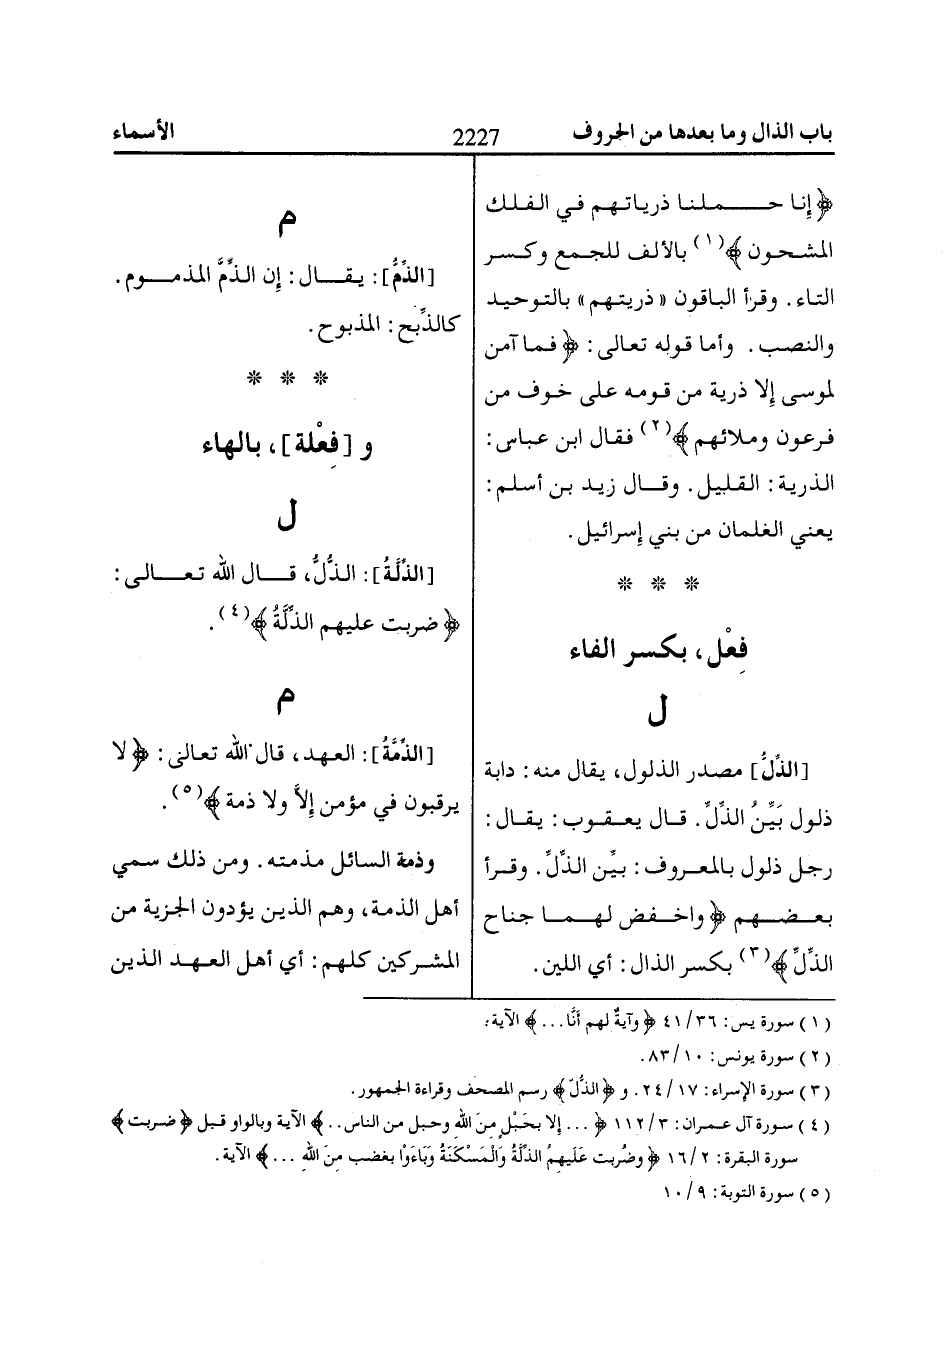 باب الذال وما بعدها من الحروف
2227
الأسماء
﴿ إنا حـملنا ذرياتـهم في الفلك
المشحون ﴾(١) بالألف للجمع وكسر
التاء. وقرأ الباقون « ذريتهم » بالتوحيد
والنصب. وأما قوله تعالى: ﴿ فما آمن
لموسى إلا ذرية من قومه على خوف من
فرعون وملائهم ﴾(٢) فقال ابن عباس:
الذرية: القليل. وقال زيد بن أسلم:
يعني الغلمان من بني إسرائيل.
* * *
فِعْل، بكسر الفاء
ل
[الذِّلُّ] مصدر الذلول، يقال منه: دابة
ذلول بَيِّنُ الذِّلِّ. قال يعقوب: يقال:
رجل ذلول بالمعروف: بيِّن الذِّلِّ. وقرأ
بعضهم ﴿ واخفض لهما جناح
الذِّلِّ ﴾(٣) بكسر الذال: أي اللين.
م
[الذِّمُّ]: يقال: إن الذِّمَّ المذموم.
كالذِّبح: المذبوح.
* * *
و [فِعْلة]، بالهاء
ل
[الذِّلَّةُ]: الذُّلُّ، قال الله تعالى:
﴿ ضربت عليهم الذِّلَّةُ ﴾(٤).
م
[الذِّمَّةُ]: العهد، قال الله تعالى: ﴿ لا
يرقبون في مؤمن إلاًّ ولا ذمة ﴾(٥).
وذمة السائل مذمته. ومن ذلك سمي
أهل الذمة، وهم الذين يؤدون الجزية من
المشركين كلهم: أي أهل العهد الذين
(١) سورة يس: ٣٦/ ٤١ ﴿ وآيةٌ لهم أنَّا... ﴾ الآية.
(٢) سورة يونس: ١٠/ ٨٣.
(٣) سورة الإسراء: ١٧/ ٢٤. و ﴿ الذُّلِّ ﴾ رسم المصحف وقراءة الجمهور.
(٤) سورة آل عمران: ٣/ ١١٢ ﴿ ... إلا بحَبْلٍ مِنَ اللهِ وحبل من الناس.. ﴾ الآية وبالواو قبل ﴿ ضربت ﴾
سورة البقرة: ٢/ ١٦ ﴿ وضُربت عَلَيهمُ الذلَّةُ وَالْمَسْكَنَةُ وَبَاءَوْا بغضب منَ الله ... ﴾ الآية.
(٥) سورة التوبة: ٩/ ١٠